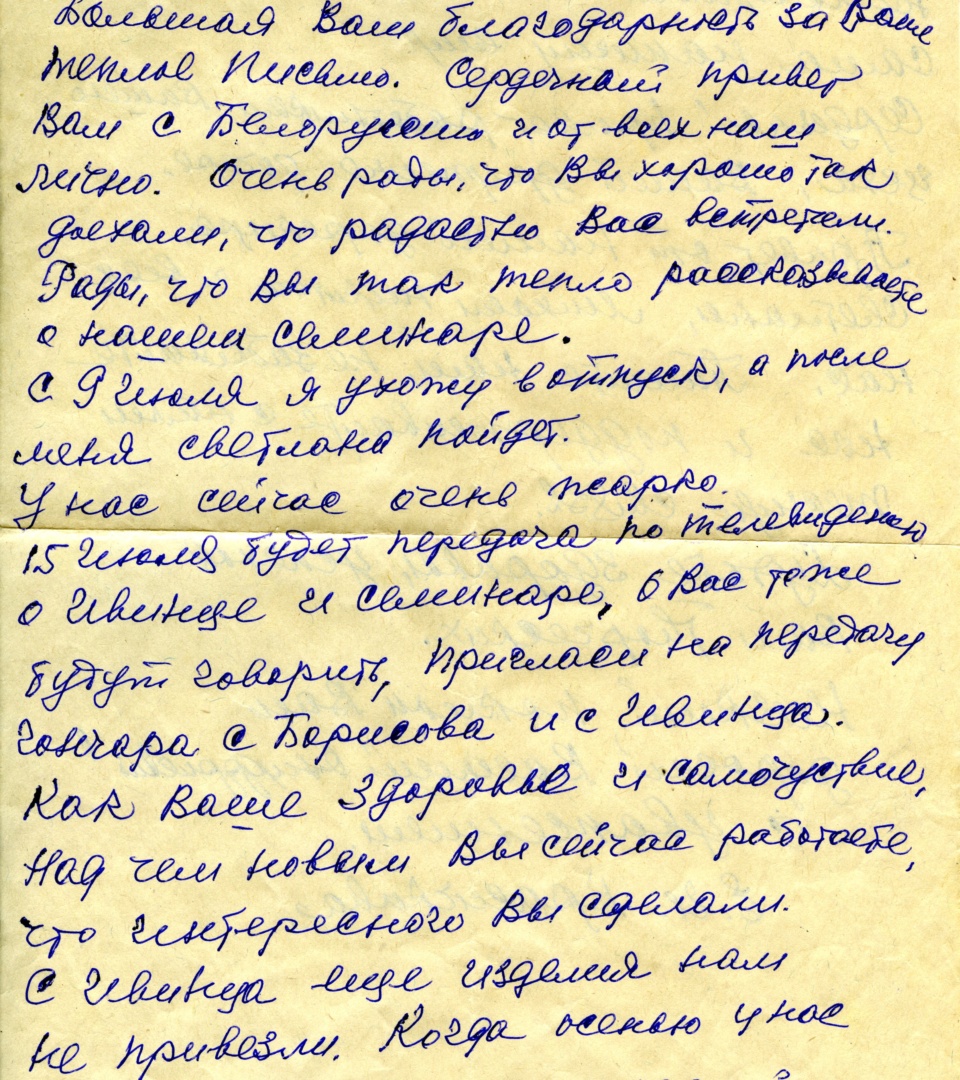 Большая Вам благодарность за Ваше
теплое Письмо. Сердечный привет
Вам с Белоруссии и от всех нас
лично. Очень рады, что Вы хорошо так
доехали, что радостно Вас встретили.
Рады, что Вы так тепло рассказываете
о нашем семинаре.
С 9 июля я ухожу в отпуск, а после
меня Светлана пойдет.
У нас сейчас очень жарко.
15 июля будет передача по телевидению
о Ивенце и семинаре, о Вас тоже
будут говорить, пригласи на передачу
гончара с Борисова и с Ивенца.
Как Ваше здоровье и самочуствие,
Над чем новым Вы сейчас работаете,
что интересного Вы сделали.
С Ивенца еще изделия нам
не привезли. Когда осенью у нас